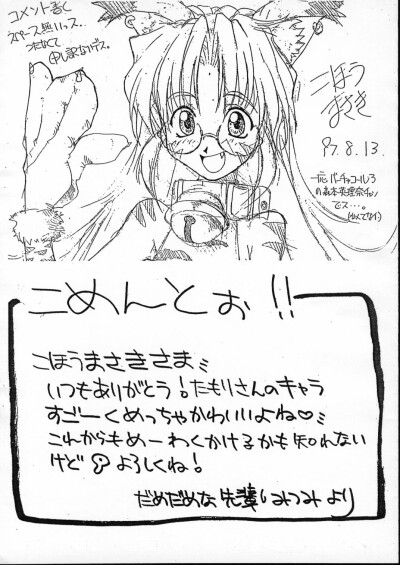 コメント書く
スペース無いっス..
つたなくて
申し訳なかデス。
こほう
まさき
97.8.13.
一応バーチャコール3
の森本英理奈チャン
でス…。
(似てない)
こめんとぉ!!
こほうまさきさま
いつもありがとう!たもりさんのキャラ
すごーくめっちゃかわいいよね♡
これからもめーわくかける子かも知れない
けど よろしくね!
だめだめな先輩いみつみより